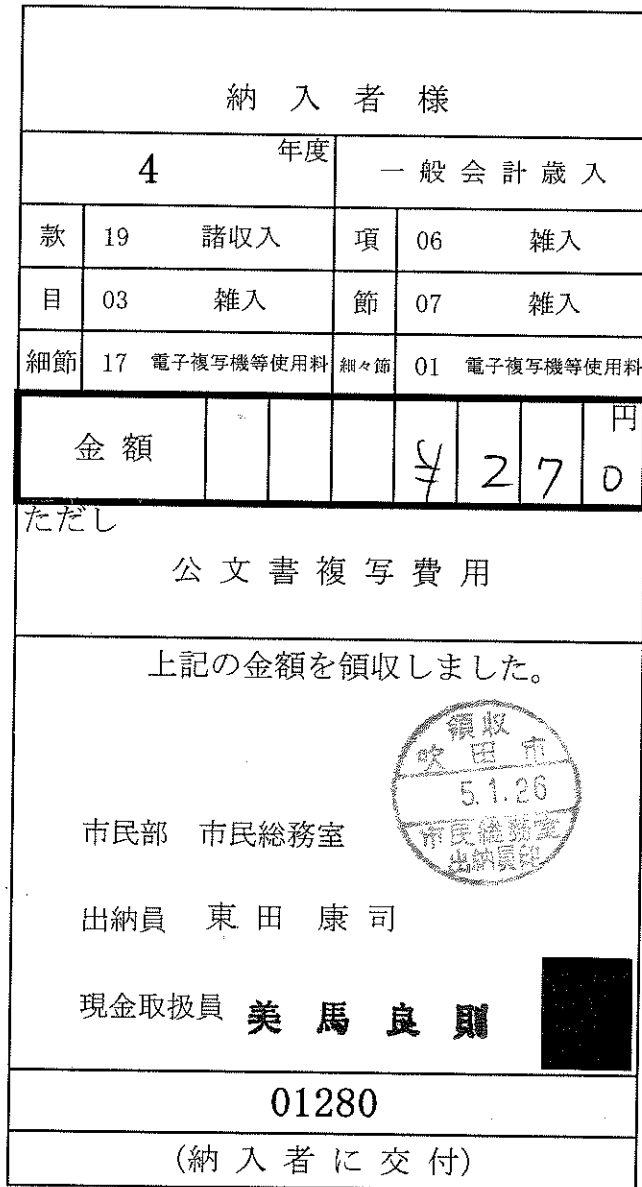 納入者様
4 年度 一般会計歳入
款 19 諸収入 項 06 雑入
目 03 雑入 節 07 雑入
細節 17 電子複写機等使用料 細々節 01 電子複写機等使用料
金額 ¥270円
ただし
公文書複写費用
上記の金額を領収しました。
領収
吹田市
5.1.26
市民総務室
出納員印
市民部 市民総務室
出納員 東田 康司
現金取扱員 美馬良則
01280
(納入者に交付)